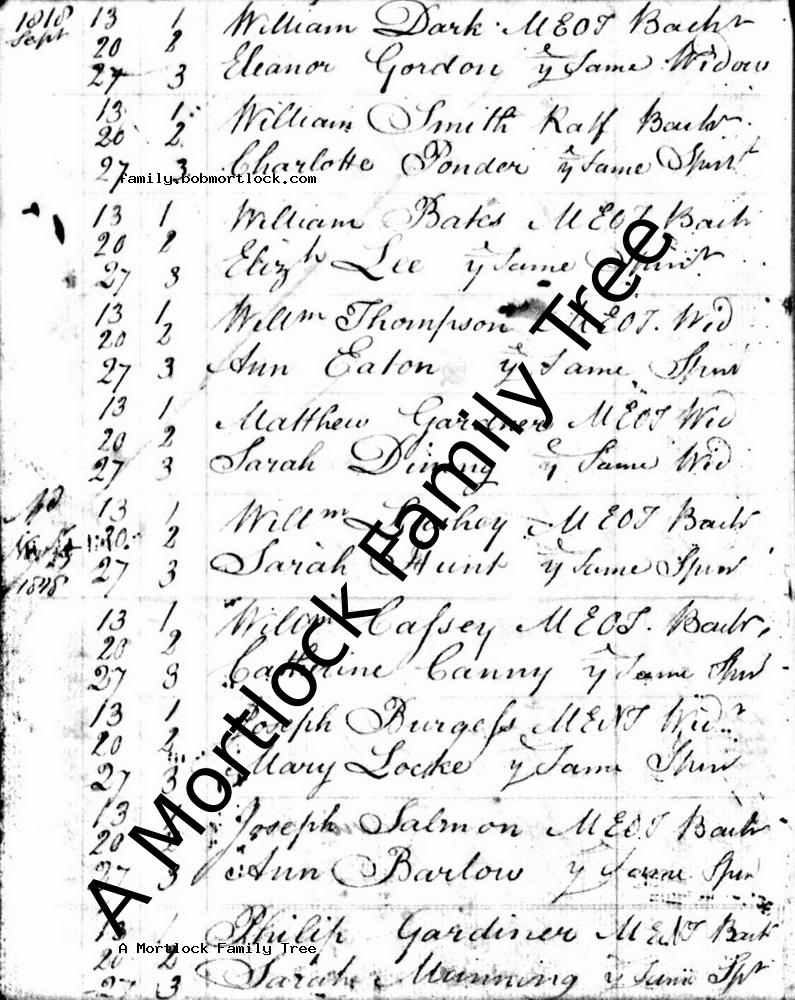 1818 13 1 William Dark MEOT Bachr
Sept 20 2
27 3 Eleanor Gordon ye Same Widow
13 1 William Smith Ratf Bachr
20 2
27 3 Charlotte Ponder ye Same Spinst
family.bobmortlock.com
13 1 William Bates MEOT Bach
20 2
27 3 Elizh Lee ye Same Spinst
13 1 Willm Thompson MEOT. Wid
20 2
27 3 Ann Eaton ye Same Spin
13 1 Matthew Gardner MEOT Wid
20 2
27 3 Sarah ye Same Wid
13 1 Willm MEOT Bachr
20 2
27 3 Sarah Hunt ye Same Spin
1818
13 1 Willm Cassey MEOT. Bachr
20 2
27 3 Catherine Canny ye Same Spin
13 1 Joseph Burgess MENT Widr
20 2
27 3 Mary Locke ye Same Spin
13 1 Joseph Salmon MEOT Bachr
20 2
27 3 Ann Barlow ye Same Spin
13 1 Philip Gardiner MENT Bach
20 2
27 3 Sarah Munning ye Same Spt
A Mortlock Family Tree
A Mortlock Family Tree